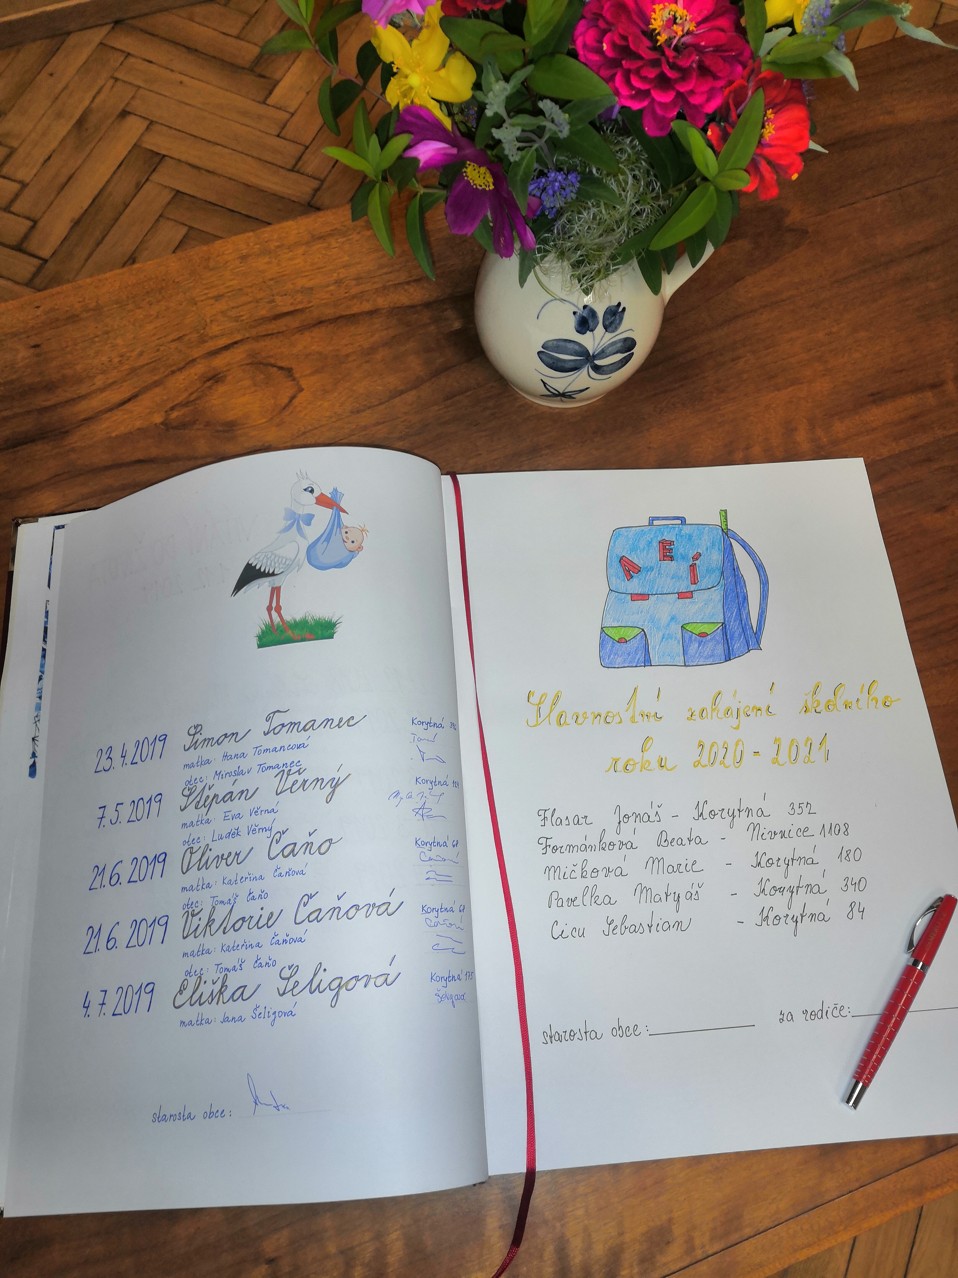 23.4.2019 Šimon Tomanec Korytná
matka: Hana Tomancová
otec: Miroslav Tomanec
7.5.2019 Štěpán Věrný Korytná
matka: Eva Věrná
otec: Luděk Věrný
21.6.2019 Oliver Čaňo Korytná
matka: Kateřina Čaňová
otec: Tomáš Čaňo
21.6.2019 Viktorie Čaňová Korytná
matka: Kateřina Čaňová
otec: Tomáš Čaňo
4.7.2019 Eliška Šeligová Korytná 175
Šeligová
matka: Jana Šeligová
starosta obce:
A E i
Slavnostní zahájení školního
roku 2020 - 2021
Flasar Jonáš - Korytná 352
Formánková Beata - Nivnice 1108
Mičková Marie - Korytná 180
Pavelka Matyáš - Korytná 340
Cicu Sebastian - Korytná 84
starosta obce: za rodiče: